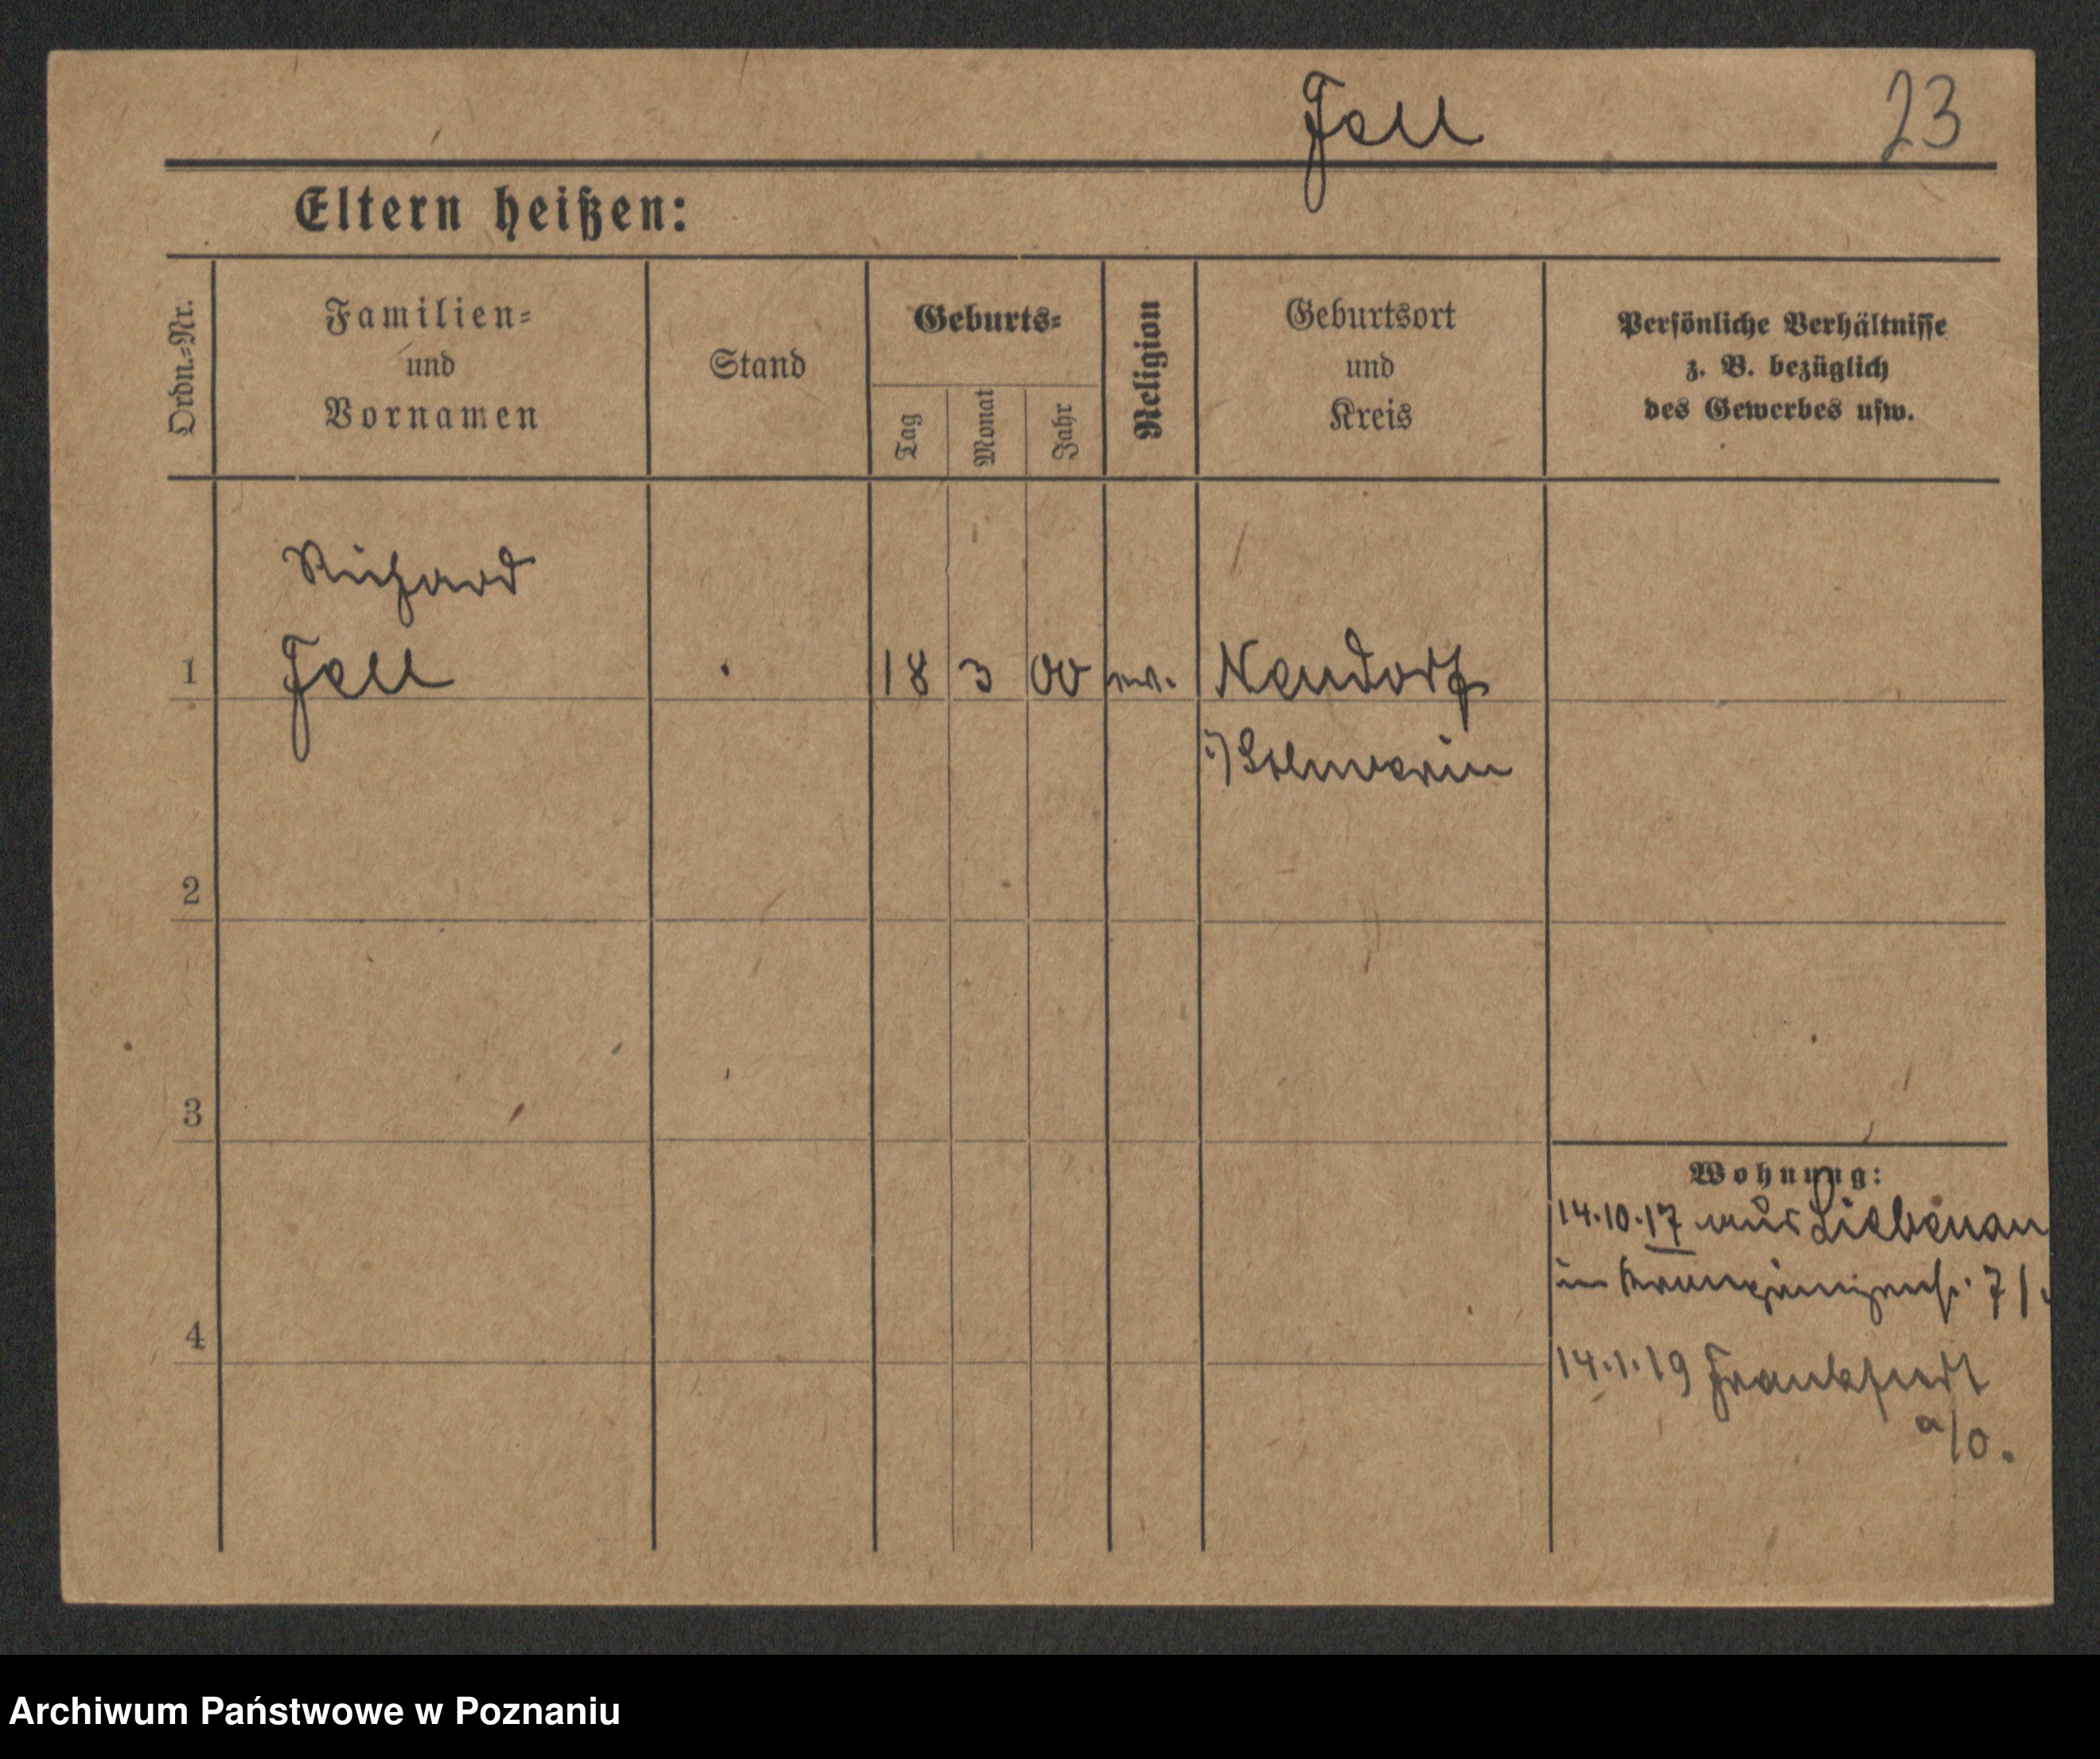 Fell 23
Eltern heißen:
Ordn.=Nr.
Familien=
und
Vornamen
Stand
Geburts=
Tag
Monat
Jahr
Religion
Geburtsort
und
Kreis
Persönliche Verhältnisse
z. B. bezüglich
des Gewerbes usw.
Richard
1 Fell 18 3 00 Neudorf
Schwerin
2
3
Wohnung:
14.10.17 aus Liebenau
in 7
4
14.1.19 Frankfurt
a/O.
Archiwum Państwowe w Poznaniu